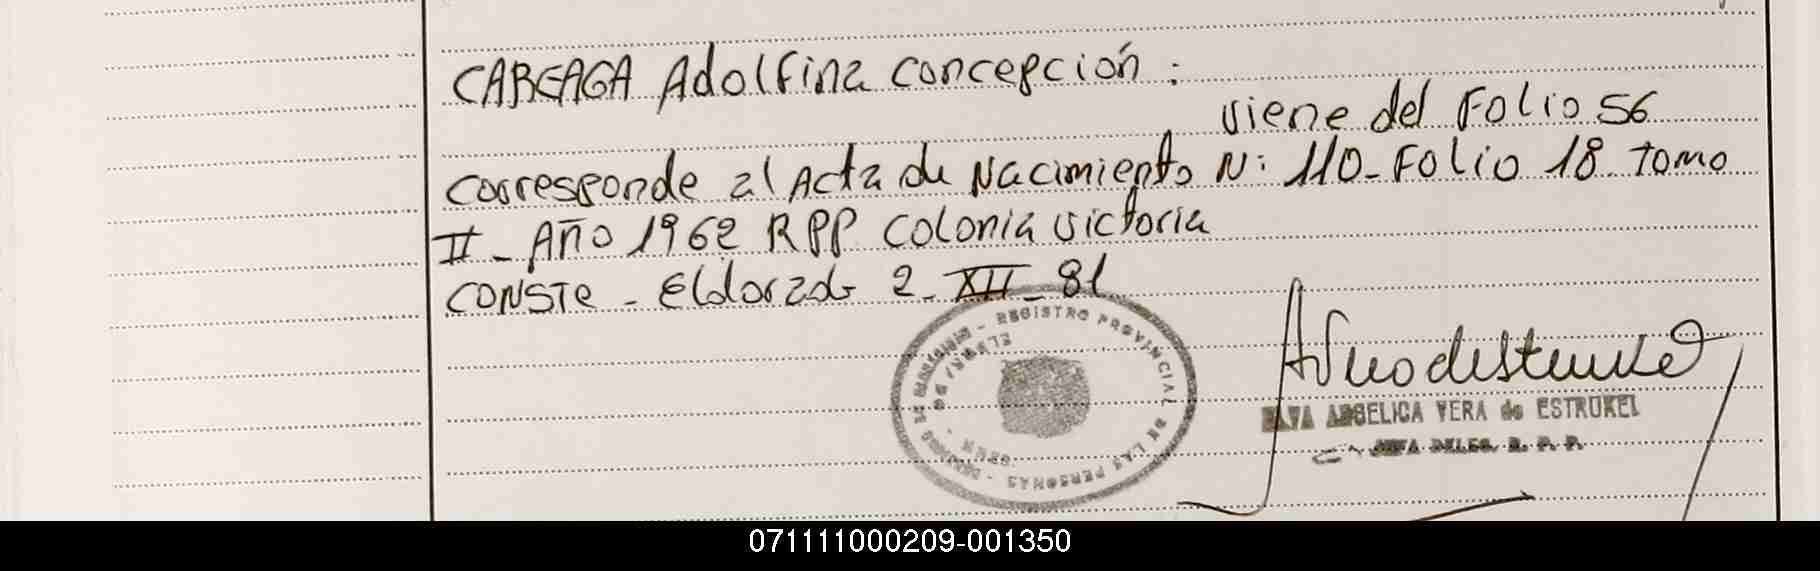 CAREAGA Adolfina Concepción :
viene del Folio 56
corresponde al Acta de Nacimiento N: 110- Folio 18 Tomo
II - Año 1962 RPP Colonia Victoria
CONSTE - Eldorado 2 - XII - 81
REGISTRO PROVINCIAL DE LAS PERSONAS
ANGELICA VERA de ESTRUKEL
JEFA DELEG. R. P. P.
071111000209-001350